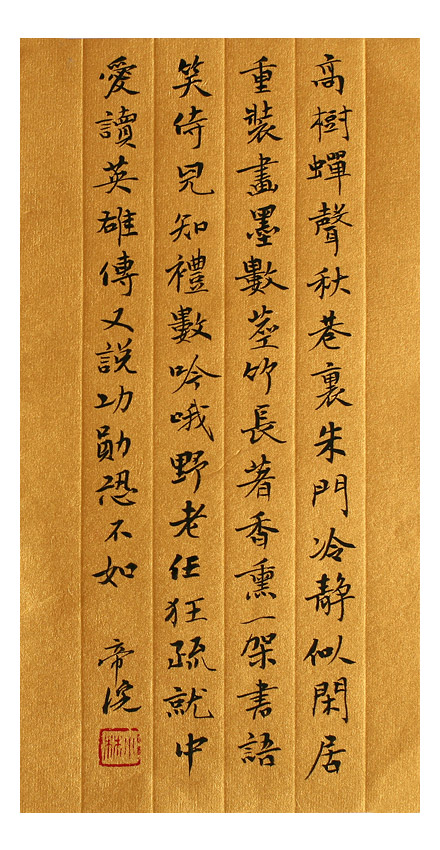 高樹蟬聲秋巷裏朱門冷靜似閑居
重裝畫墨數莖竹長著香熏一架書語
笑侍兒知禮數吟哦野老任狂疏就中
愛讀英雄傳又說功勛恐不如
帝浣